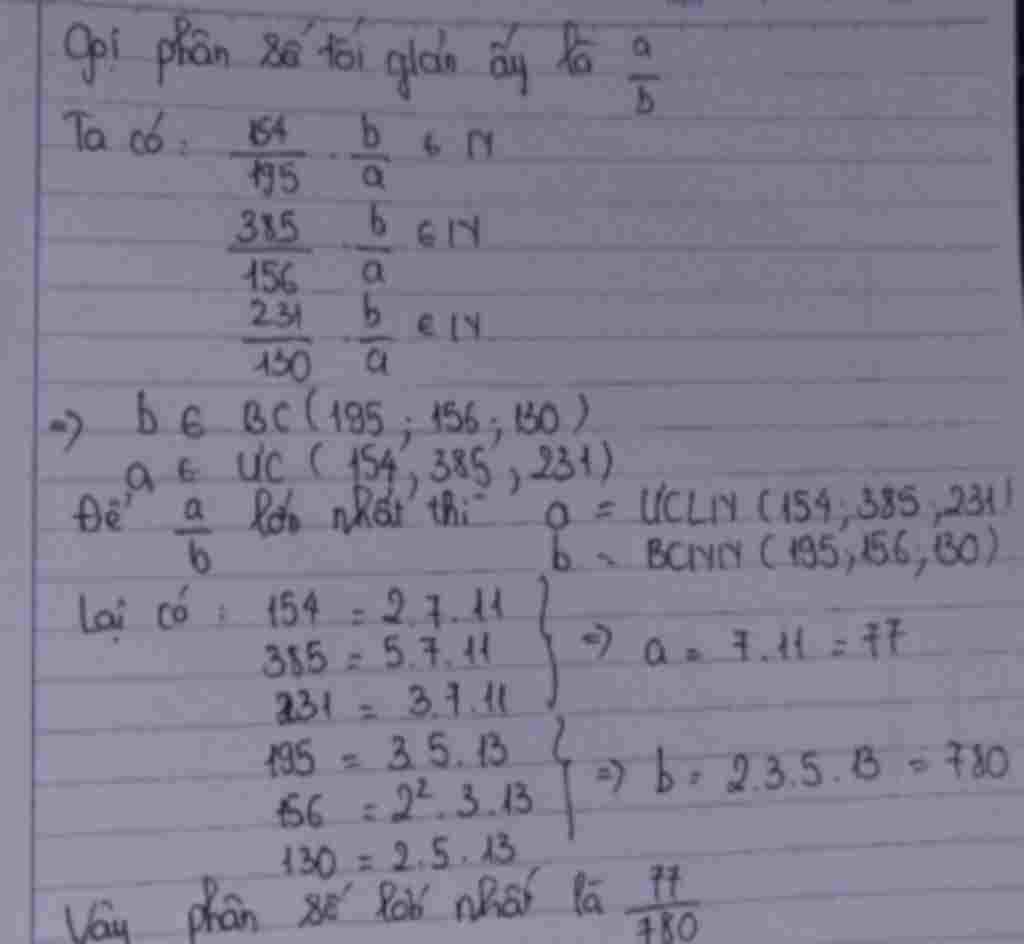 Gọi phân số tối giản ấy là a/b
Ta có: 154/195 . b/a ∈ N
385/156 . b/a ∈ N
231/130 . b/a ∈ N
=> b ∈ BC(195; 156; 130)
a ∈ ƯC (154, 385, 231)
Để a/b lớn nhất thì a = ƯCLN (154, 385, 231)
b = BCNN (195, 156, 130)
Lại có: 154 = 2.7.11
385 = 5.7.11
231 = 3.7.11
} => a = 7.11 = 77
195 = 3.5.13
156 = 2².3.13
130 = 2.5.13
} => b = 2.3.5.13 = 780
Vậy phân số lớn nhất là 77/780